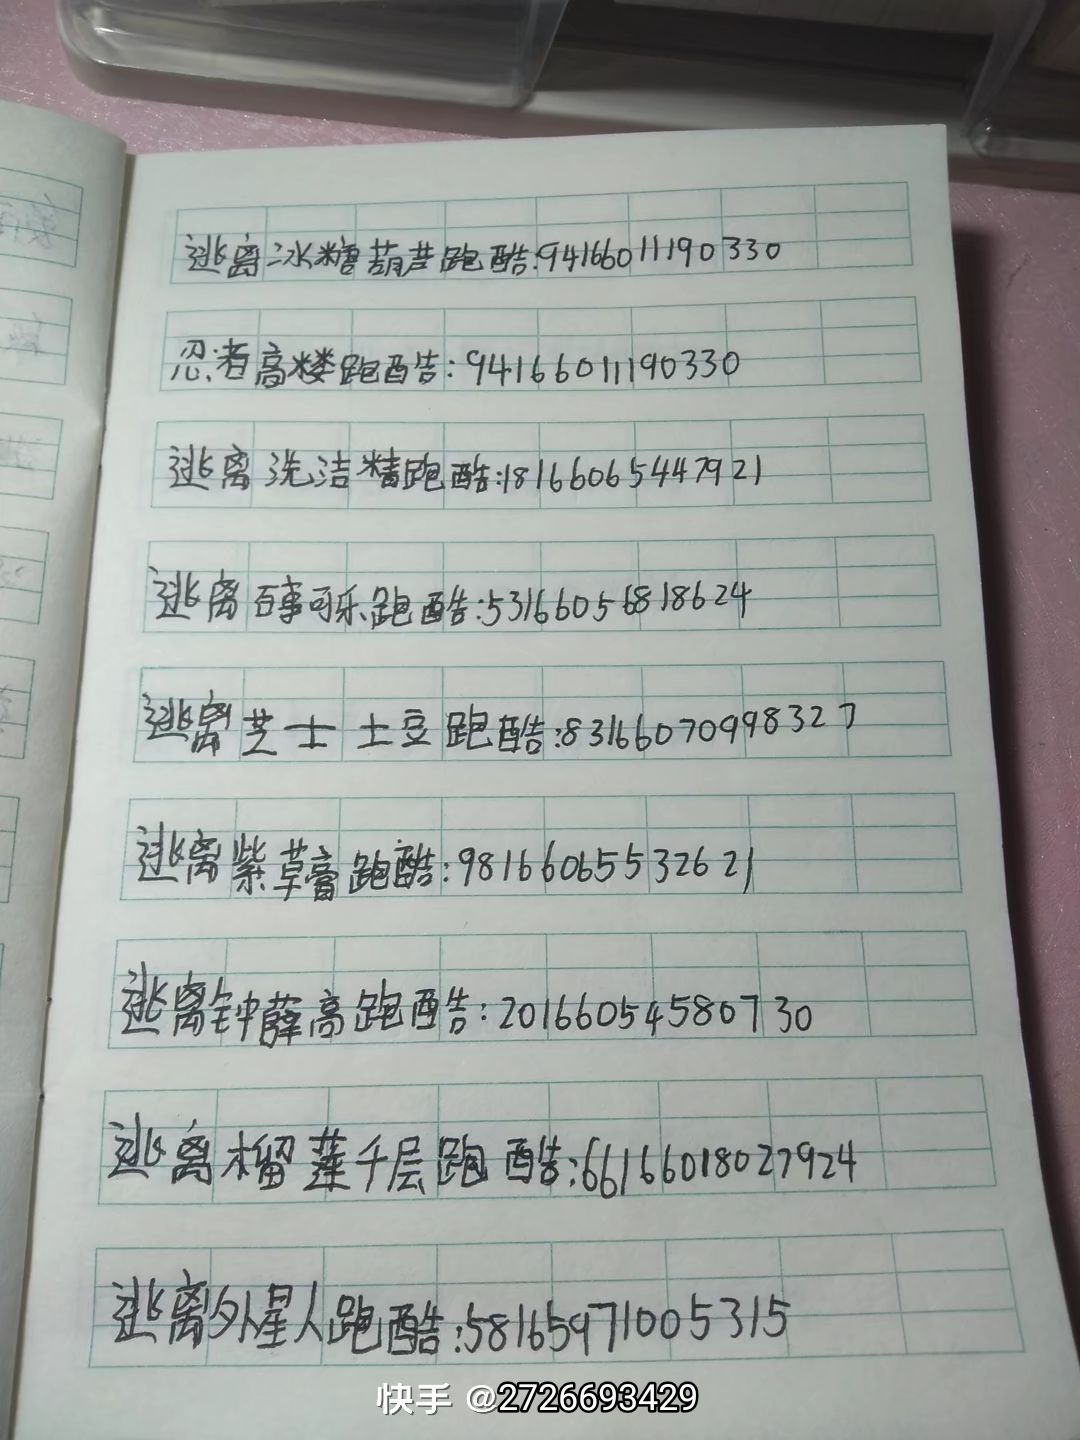 逃离冰糖葫芦跑酷:94166011190330
忍者高楼跑酷:94166011190330
逃离洗洁精跑酷:18166065447921
逃离百事可乐跑酷:53166056818624
逃离芝士土豆跑酷:83166070998327
逃离紫草膏跑酷:98166065532621
逃离钟薛高跑酷:20166054580730
逃离榴莲千层跑酷:66166018027924
逃离外星人跑酷:58165971005315
快手 @2726693429